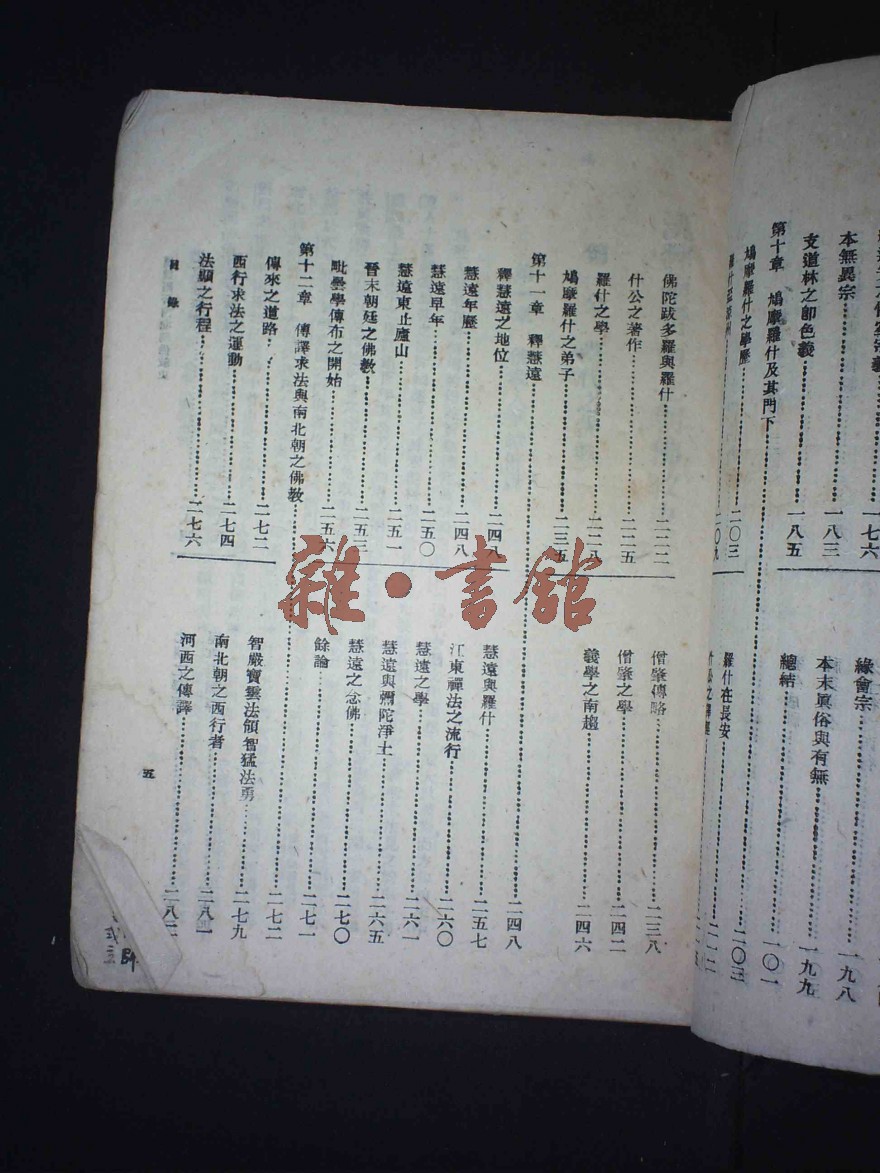 本無異宗……一八三
支道林之卽色義……一八五
緣會宗……一九八
本末眞俗與有無……一九九
總結
第十章 鳩摩羅什及其門下
鳩摩羅什之學歷……二〇三
二〇九
羅什在長安
佛陀跋多羅與羅什……二二二
什公之著作……二二五
羅什之學……二二八
鳩摩羅什之弟子……二三五
僧肇傳略……二三八
僧肇之學……二四二
義學之南趨……二四六
第十一章 釋慧遠……二四八
釋慧遠之地位……二四八
慧遠年歷……二四八
慧遠早年……二五〇
慧遠東止廬山……二五一
晉末朝廷之佛教……二五三
毗曇學傳布之開始……二五六
慧遠與羅什……二五七
江東禪法之流行……二六〇
慧遠之學……二六一
慧遠與彌陀淨土……二六五
慧遠之念佛……二七〇
餘論……二七一
第十二章 傳譯求法與南北朝之佛教……二七二
傳來之道路……二七二
西行求法之運動……二七四
法顯之行程……二七六
智嚴寶雲法領智猛法勇……二七九
南北朝之西行者……二八一
河西之傳譯
目錄
五
雜·書館